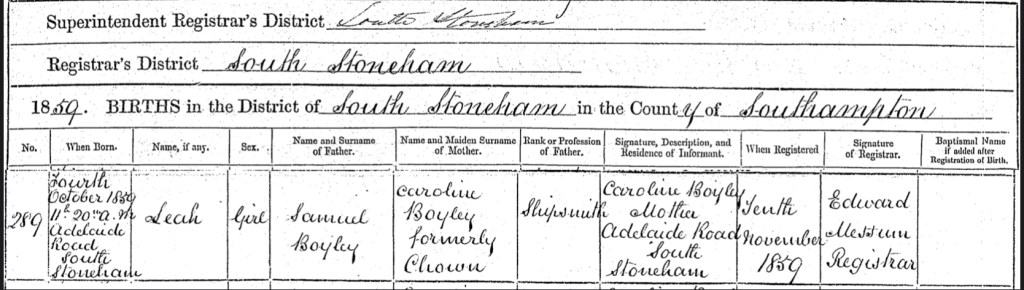 Superintendent Registrar's District South Stoneham
Registrar's District South Stoneham
1859. BIRTHS in the District of South Stoneham in the County of Southampton
No. When Born. Name, if any. Sex. Name and Surname of Father. Name and Maiden Surname of Mother. Rank or Profession of Father. Signature, Description, and Residence of Informant. When Registered Signature of Registrar. Baptismal Name if added after Registration of Birth.
289
Fourth
October 1859
11h 20m a.m
Adelaide
Road
South
Stoneham
Leah
Girl
Samuel
Boyley
Caroline
Boyley
formerly
Chown
Shipsmith
Caroline Boyley
Mother
Adelaide Road
South
Stoneham
Tenth
November
1859
Edward
Messum
Registrar